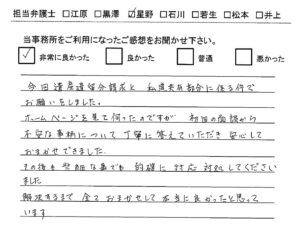 担当弁護士 □江原 □黒澤 ☑星野 □石川 □若生 □松本 □井上
当事務所をご利用になったご感想をお聞かせ下さい。
☑ 非常に良かった □ 良かった □ 普通 □ 悪かった
今回遺産遺留分請求と 私道共有部分に係る件で
お願いをしました。
ホームページを見て伺ったのですが 初回の面談から
不安な事柄について 丁寧に答えていただき 安心して
おまかせできました。
その後も 些細な事でも 的確に 対応 対処してください
ました
解決するまで 全て おまかせして 本当に良かったと思って
います